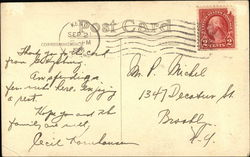 Post Card
SEP 2
Thank you for the card
from Gettysburg.
Am spending a
few weeks here. Enjoying
a rest.
Hope you and the
family are well,
Cecil
Mr. P. Michel
1347 Decatur St.
Brookl
N.Y.